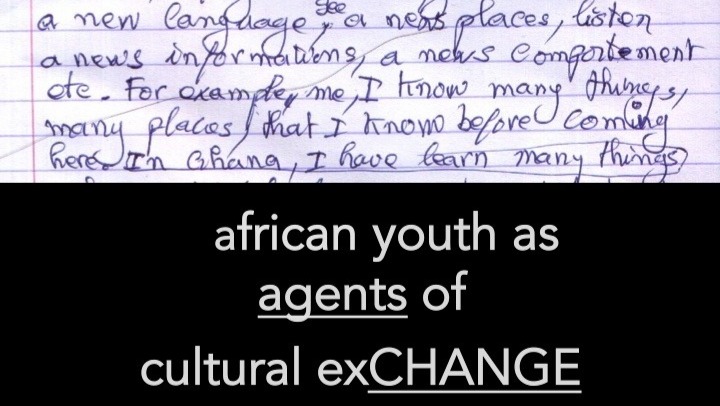 a new language, see a news places, listen
a news informations, a news comportement
etc. For example, me, I know many things,
many places that I know before coming
here. In Ghana, I have learn many things
african youth as
agents of
cultural exCHANGE